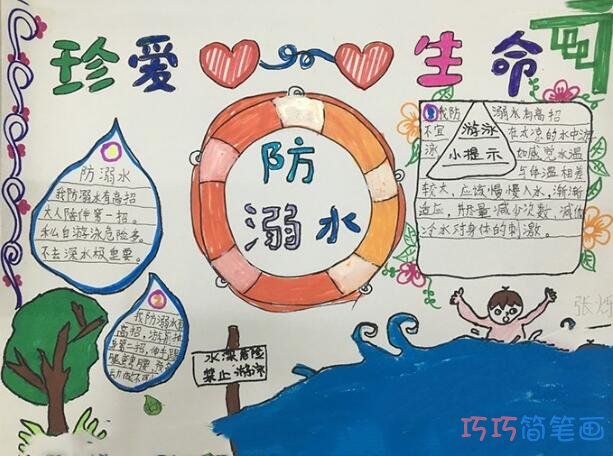 珍爱
生命
防
溺水
①
防溺水
我防溺水有高招
大人陪伴第一招。
私自游泳危险多。
不去深水极重要。
②
我防溺水有
高招,游前抽
第二招,伸手踢
动做不
③我防溺水有高招
游泳
小提示
不宜在太凉的水中游
泳如感觉水温
与体温相差
较大,应该慢慢入水,渐渐
适应,并尽量减少次数,减低
冷水对身体的刺激。
水深危险
禁止游泳
张
巧巧简笔画